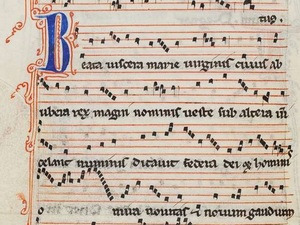 tus.
Beata viscera marie virginis cuius ab
ubera rex magni nominis veste sub altera
celans numinis dictavit federa dei et homini
o mira novitas et novum gaudium